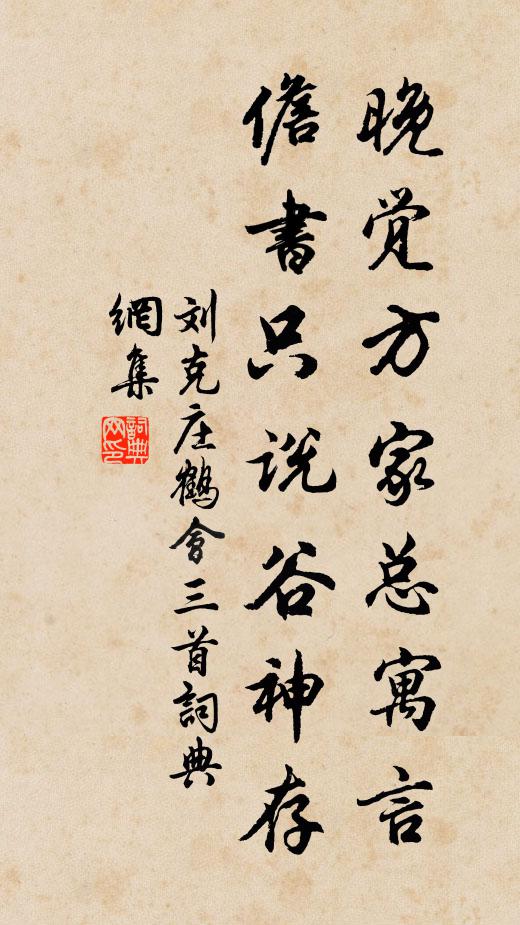 晚觉方家总寓言
儋書只说谷神存
刘克庄鹤會三首詞典
網集
詞典网印